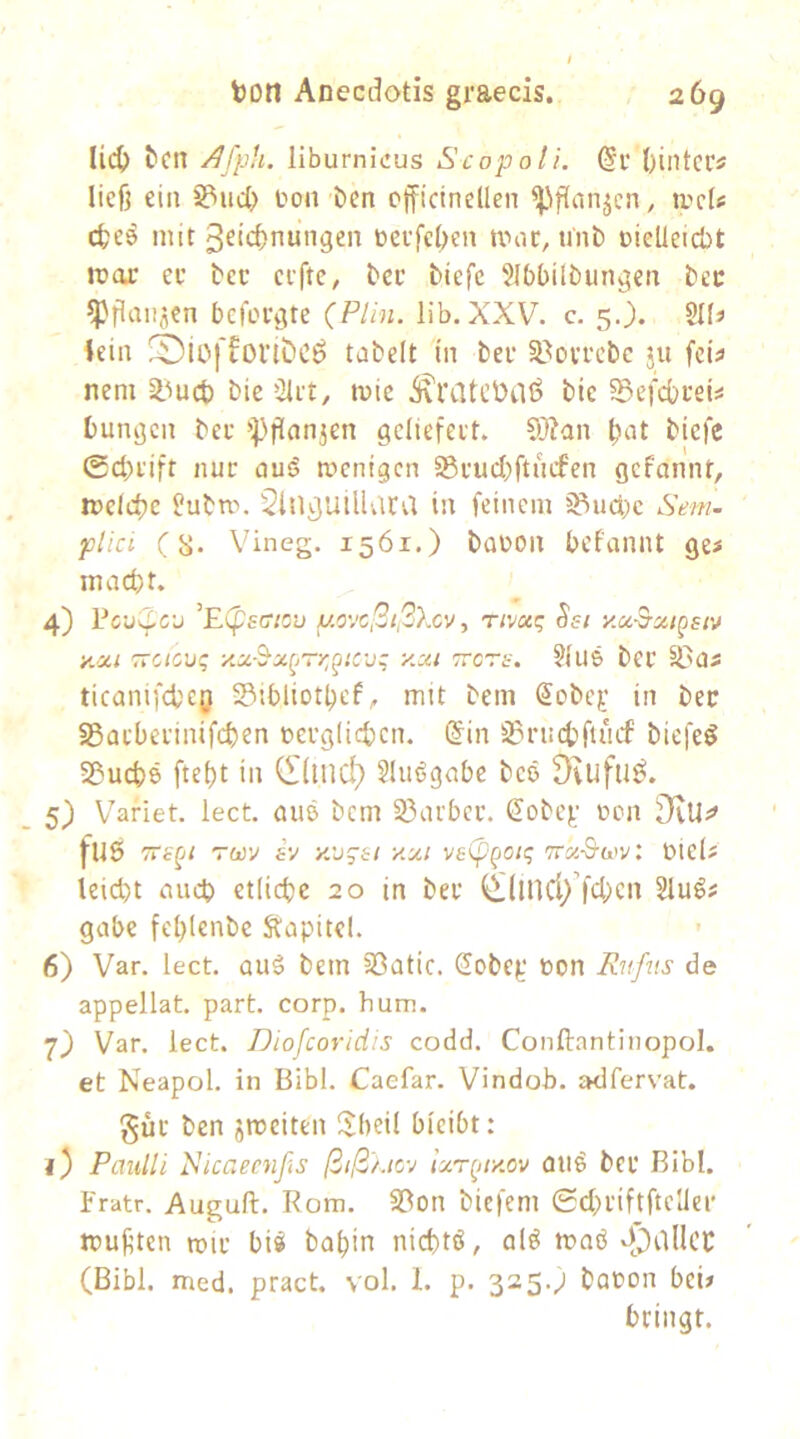 von Anecdotis graecis. 269
lich den Asph. liburnicus Scopoli. Er hinter⸗
ließ ein Buch von den officinellen Pflanzen, wel⸗
ches mit Zeichnungen versehen war, und vielleicht
war er der erste, der diese Abbildungen der
Pflanzen besorgte (Plin. lib. XXV. c. 5.). Al⸗
lein Dioskorides tadelt in der Vorrede zu sei⸗
nem Buch die Art, wie Kratevas die Beschrei⸗
bungen der Pflanzen geliefert. Man hat diese
Schrift nur aus wenigen Bruchstücken gekannt,
welche Ludw. Anguillara in seinem Buche Sem-
plici (8. Vineg. 1561.) davon bekannt ge⸗
macht.
4) Ρουφου Ἐφεσιου μονοβιβλον, τινας δει καθαιρειν
και ποιους καθαρτηριους και ποτε. Aus der Va⸗
ticanischen Bibliothek, mit dem Codex in der
Barberinischen verglichen. Ein Bruchstück dieses
Buchs steht in Clinch Ausgabe des Rufus.
5) Variet. lect. aus dem Barber. Codex von Ru⸗
fus περι των εν κυςει και νεφροις παθων: viel⸗
leicht auch etliche 20 in der Clinch'schen Aus⸗
gabe fehlende Kapitel.
6) Var. lect. aus dem Vatic. Codex von Rufus de
appellat. part. corp. hum.
7) Var. lect. Dioscoridis codd. Constantinopol.
et Neapol. in Bibl. Caesar. Vindob. adservat.
Für den zweiten Theil bleibt:
1) Paulli Nicaeensis βιβλιον ιατρικον aus der Bibl.
Fratr. August. Rom. Von diesem Schriftsteller
wußten wir bis dahin nichts, als was Haller
(Bibl. med. pract. vol. I. p. 325.) davon bei⸗
bringt.